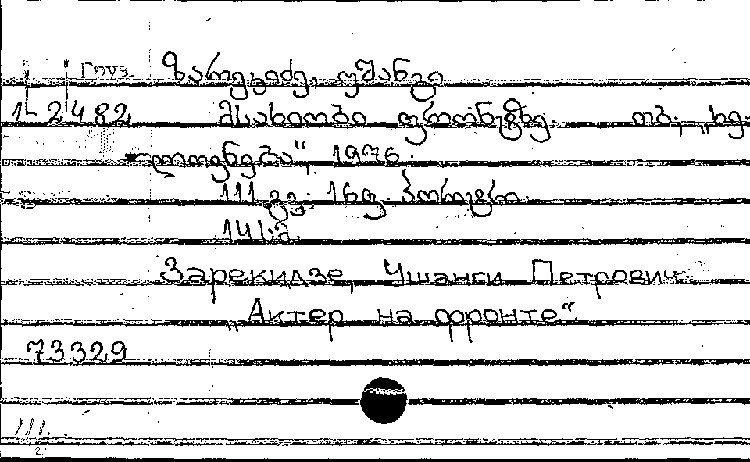 Груз. ზარეკიძე, უშანგი
1-2482 მსახიობი ფრონტზე. თბ., „ხე-
ლოვნება", 1976.
111 გვ; 16ფ. პორტრ.
14 ს.მ.
Зарекидзе, Ушанги Петрович
„Актер на фронте".
73329
111.